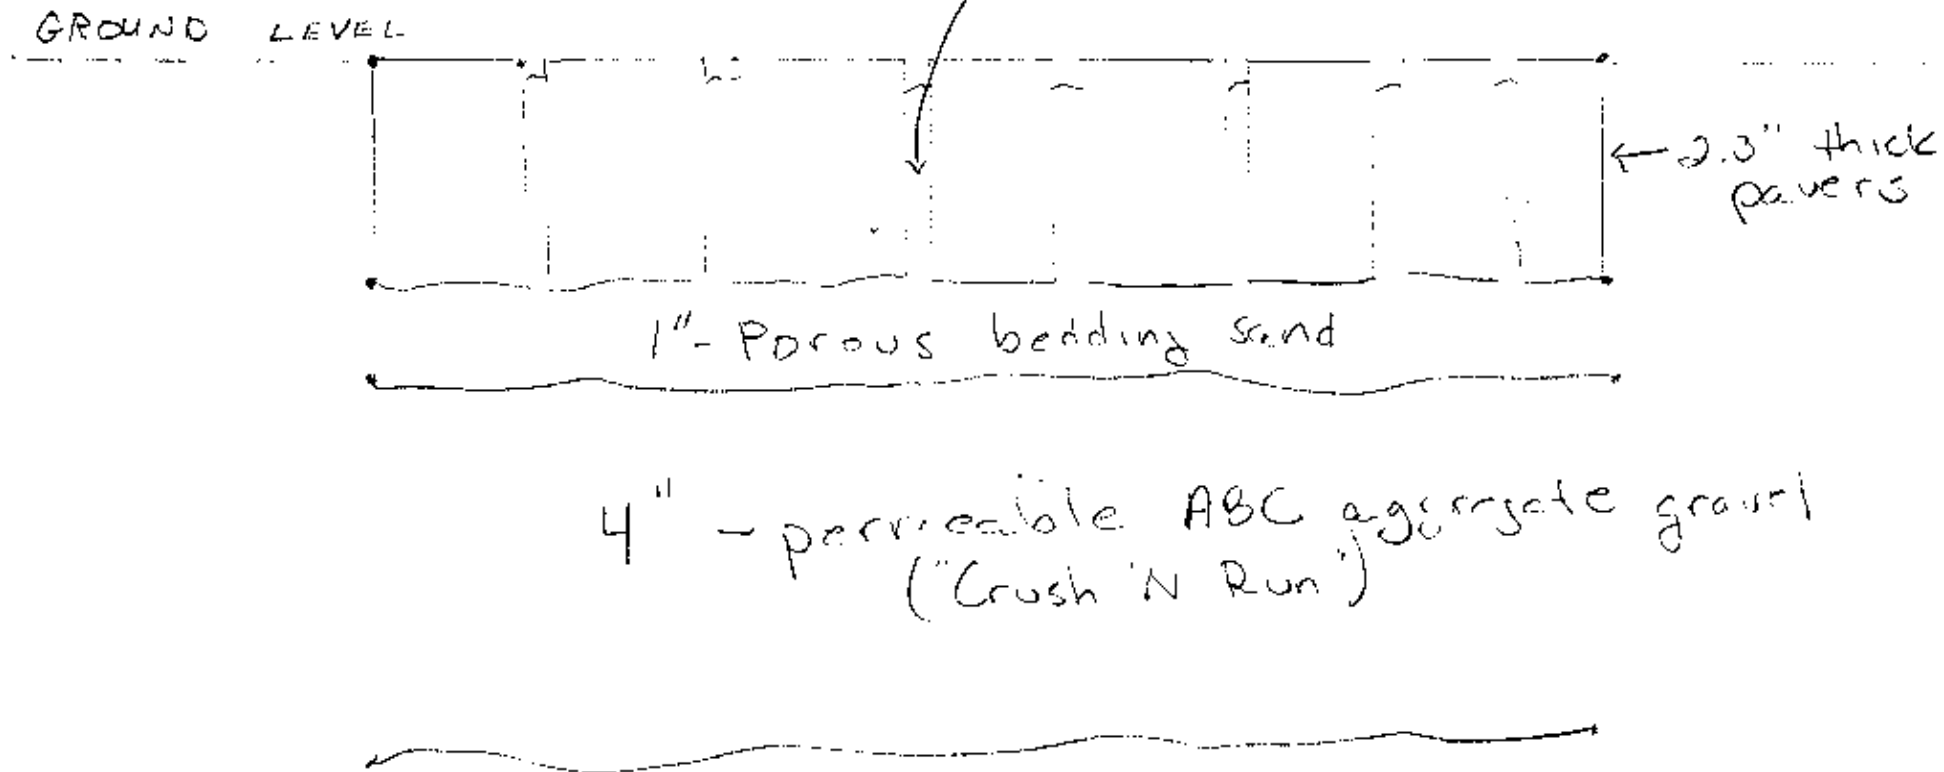 GROUND LEVEL
← 2.3" thick
pavers
1"- Porous bedding sand
4" - permeable ABC aggregate gravel
("Crush 'N Run")